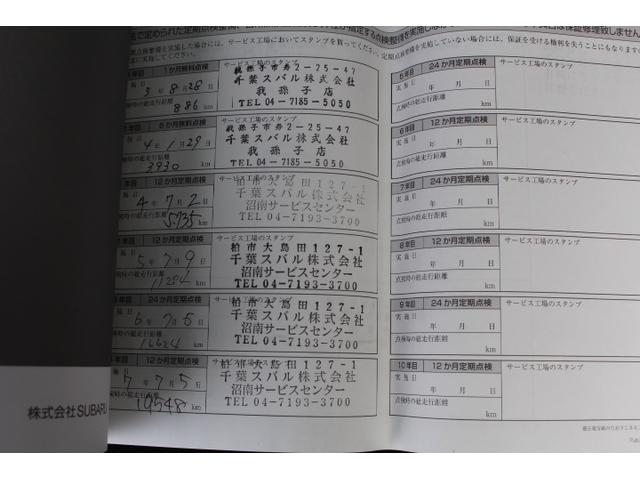 法で定められた定期点検整備
が指定する点検整備を実施
は保証修理致しません
点検整備を実施した場合には、サービス工場においてスタンプを貰ってください。定期点検整備を実施していない場合には、保証を受ける権利を失うことになります
年目 1か月無料点検 サービス工場のスタンプ
実施日 3年 8月 28日
点検時の総走行距離 886 km
我孫子市寿2-25-47
千葉スバル株式会社
我孫子店
TEL 04-7185-5050
年目 6か月無料点検 サービス工場のスタンプ
4年 1月 29日
総走行距離 3930 km
我孫子市寿2-25-47
千葉スバル株式会社
我孫子店
TEL 04-7185-5050
年目 12か月定期点検 サービス工場のスタンプ
4年 7月 2日
検時の総走行距離 5735 km
柏市大島田127-1
千葉スバル株式会社
沼南サービスセンター
TEL 04-7193-3700
12か月定期点検 サービス工場のスタンプ
5年 7月 9日
検時の総走行距離 km
柏市大島田127-1
千葉スバル株式会社
沼南サービスセンター
TEL 04-7193-3700
年目 24か月定期点検 サービス工場のスタンプ
6年 7月 5日
検時の総走行距離 16624 km
柏市大島田127-1
千葉スバル株式会社
沼南サービスセンター
TEL 04-7193-3700
年目 12か月定期点検 サービス工場のスタンプ
7年 7月 5日
点検時の総走行距離 19548 km
柏市大島田127-1
千葉スバル株式会社
沼南サービスセンター
TEL 04-7193-3700
5年目 24か月定期点検 サービス工場のスタンプ
実施日 年 月 日
点検時の総走行距離 km
6年目 12か月定期点検 サービス工場のスタンプ
実施日 年 月 日
点検時の総走行距離 km
7年目 24か月定期点検 サービス工場のスタンプ
実施日 年 月 日
点検時の総走行距離 km
8年目 12か月定期点検 サービス工場のスタンプ
実施日 年 月 日
点検時の総走行距離 km
9年目 24か月定期点検 サービス工場のスタンプ
実施日 年 月 日
点検時の総走行距離 km
10年目 12か月定期点検 サービス工場のスタンプ
実施日 年 月 日
点検時の総走行距離 km
株式会社SUBARU